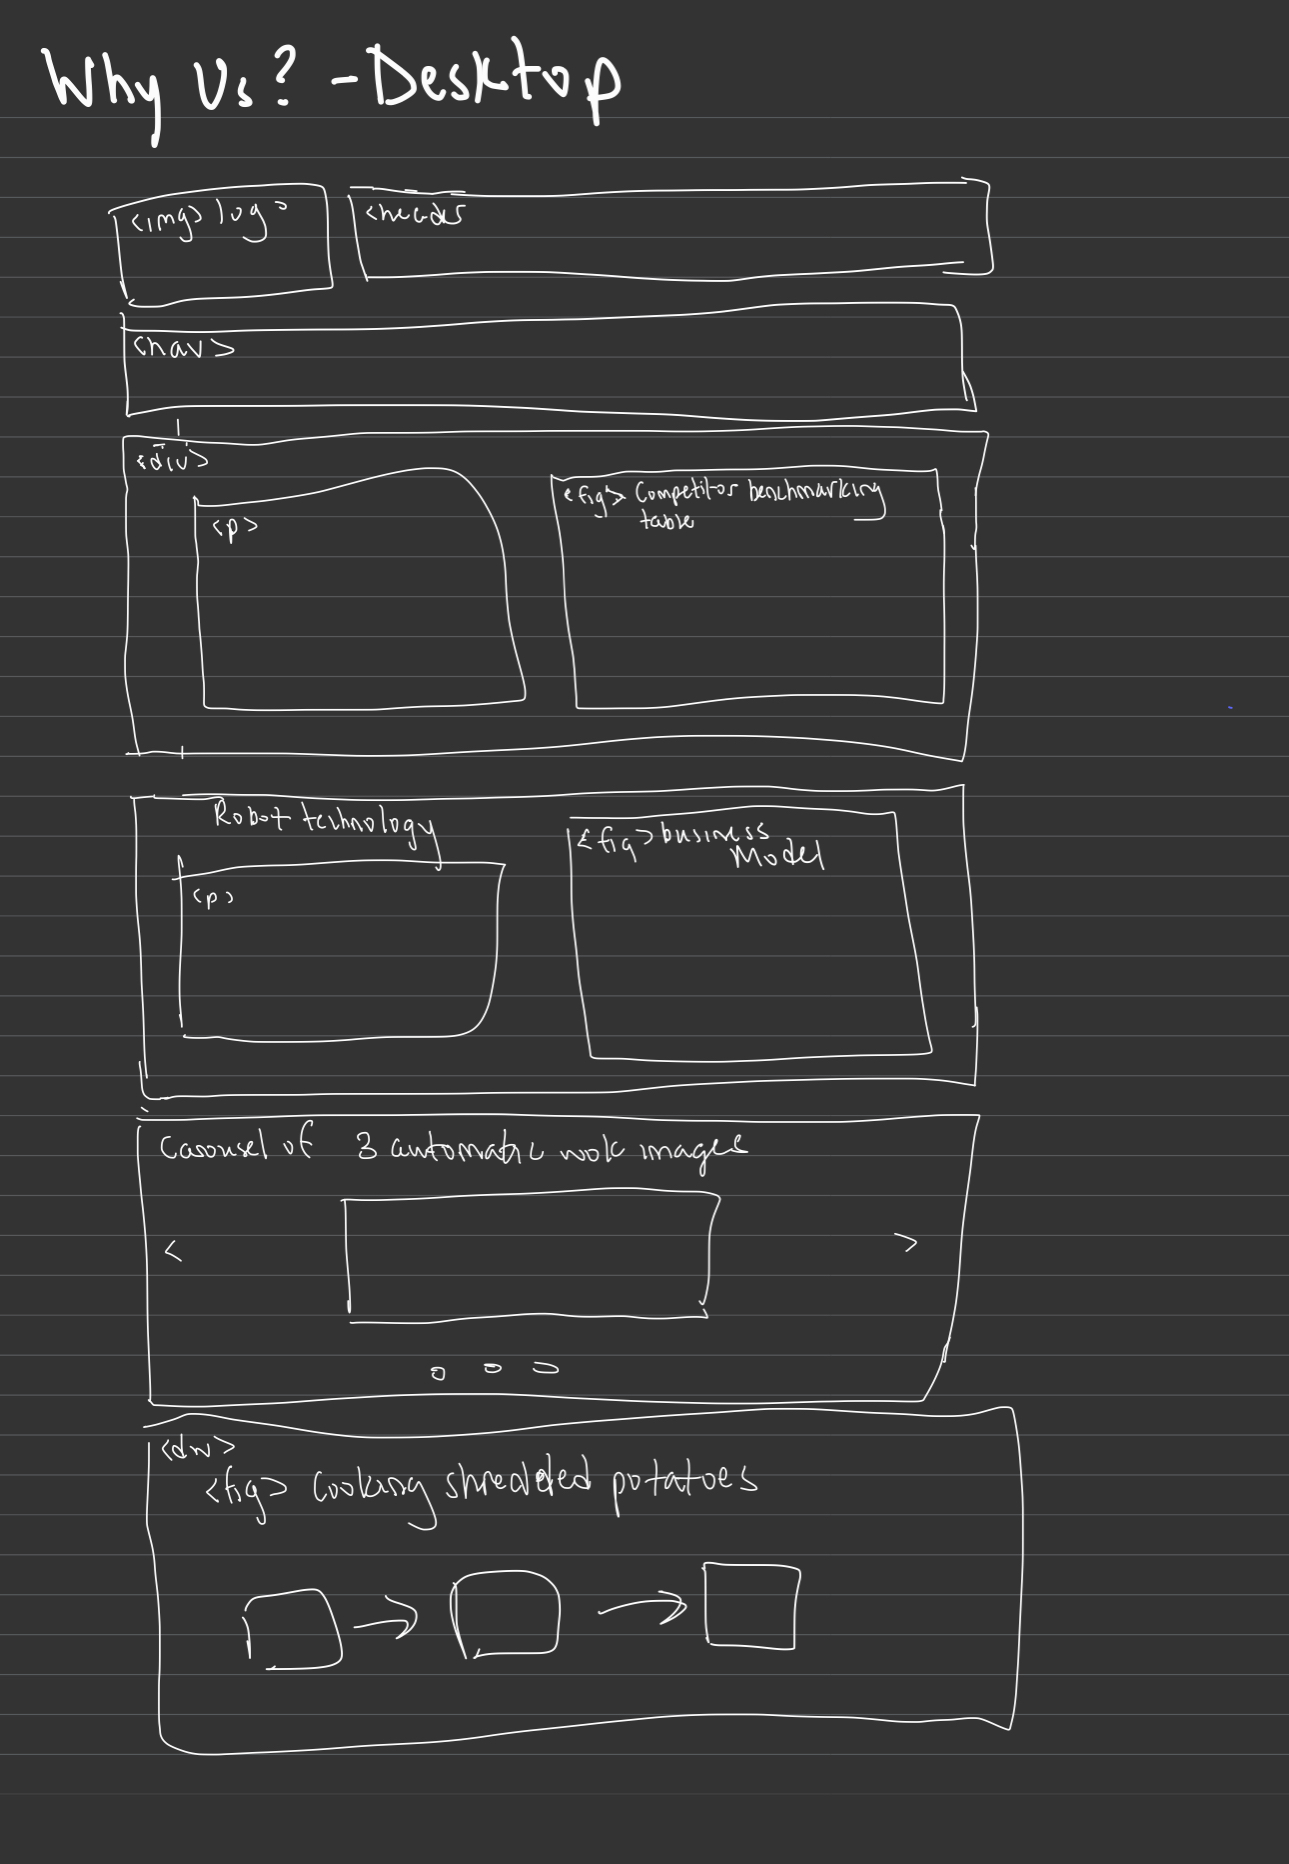 Why Us? - Desktop
<img> logo
<header
<nav>
<div>
<p>
<fig> Competitor benchmarking
table
Robot technology
<p>
<fig> business
Model
Carousel of 3 automatic wok images
< >
<div>
<fig> Cooking shredded potatoes